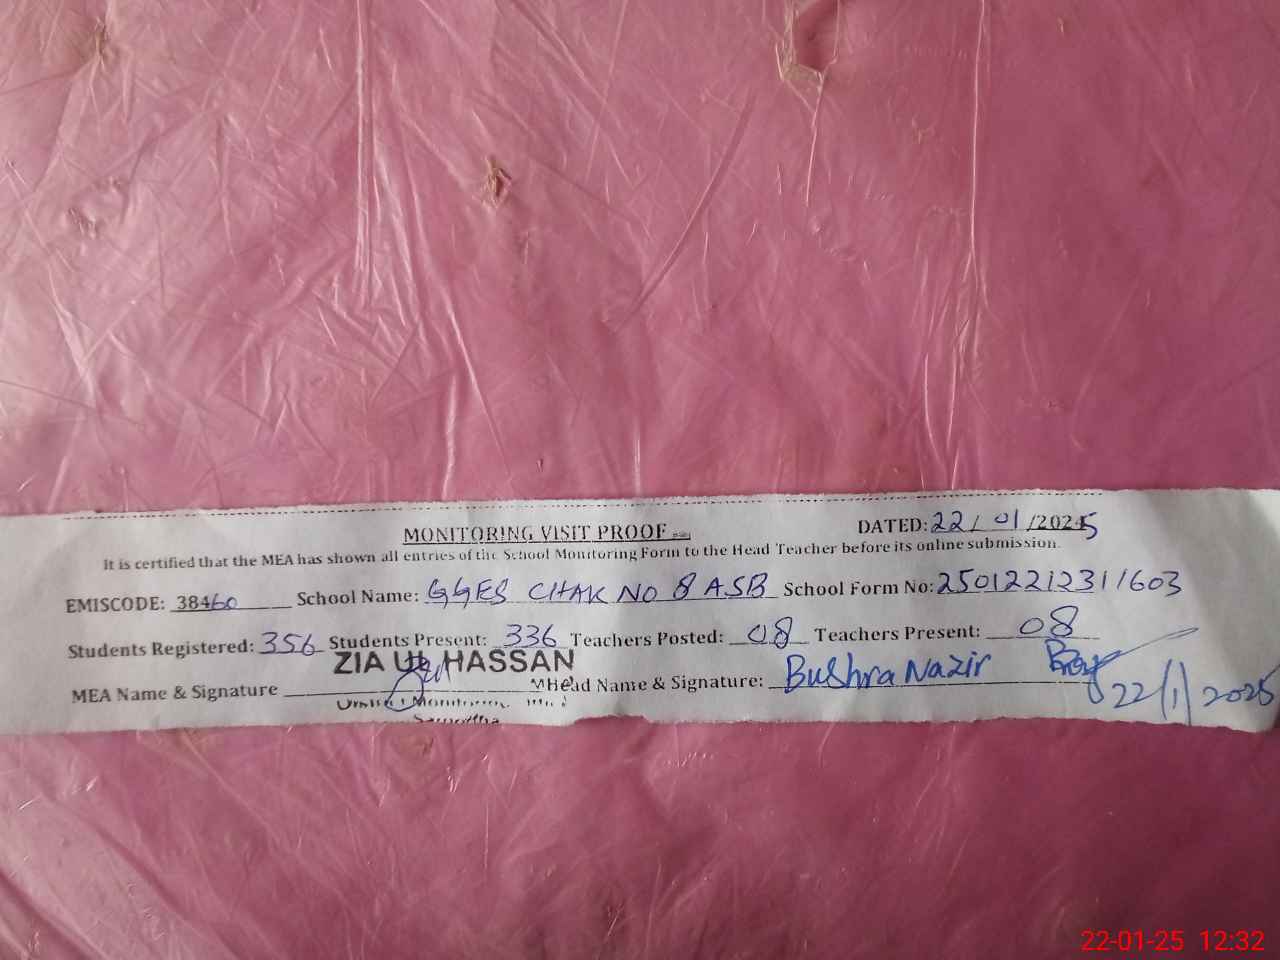 MONITORING VISIT PROOF
DATED: 22/01/2025
It is certified that the MEA has shown all entries of the School Monitoring Form to the Head Teacher before its online submission.
EMISCODE: 38460 School Name: GGES CHAK NO 8 ASB School Form No: 25012212311603
Students Registered: 356 Students Present: 336 Teachers Posted: 08 Teachers Present: 08
ZIA UL HASSAN
MEA Name & Signature Head Name & Signature: Bushra Nazir
22/1/2025
22-01-25 12:32